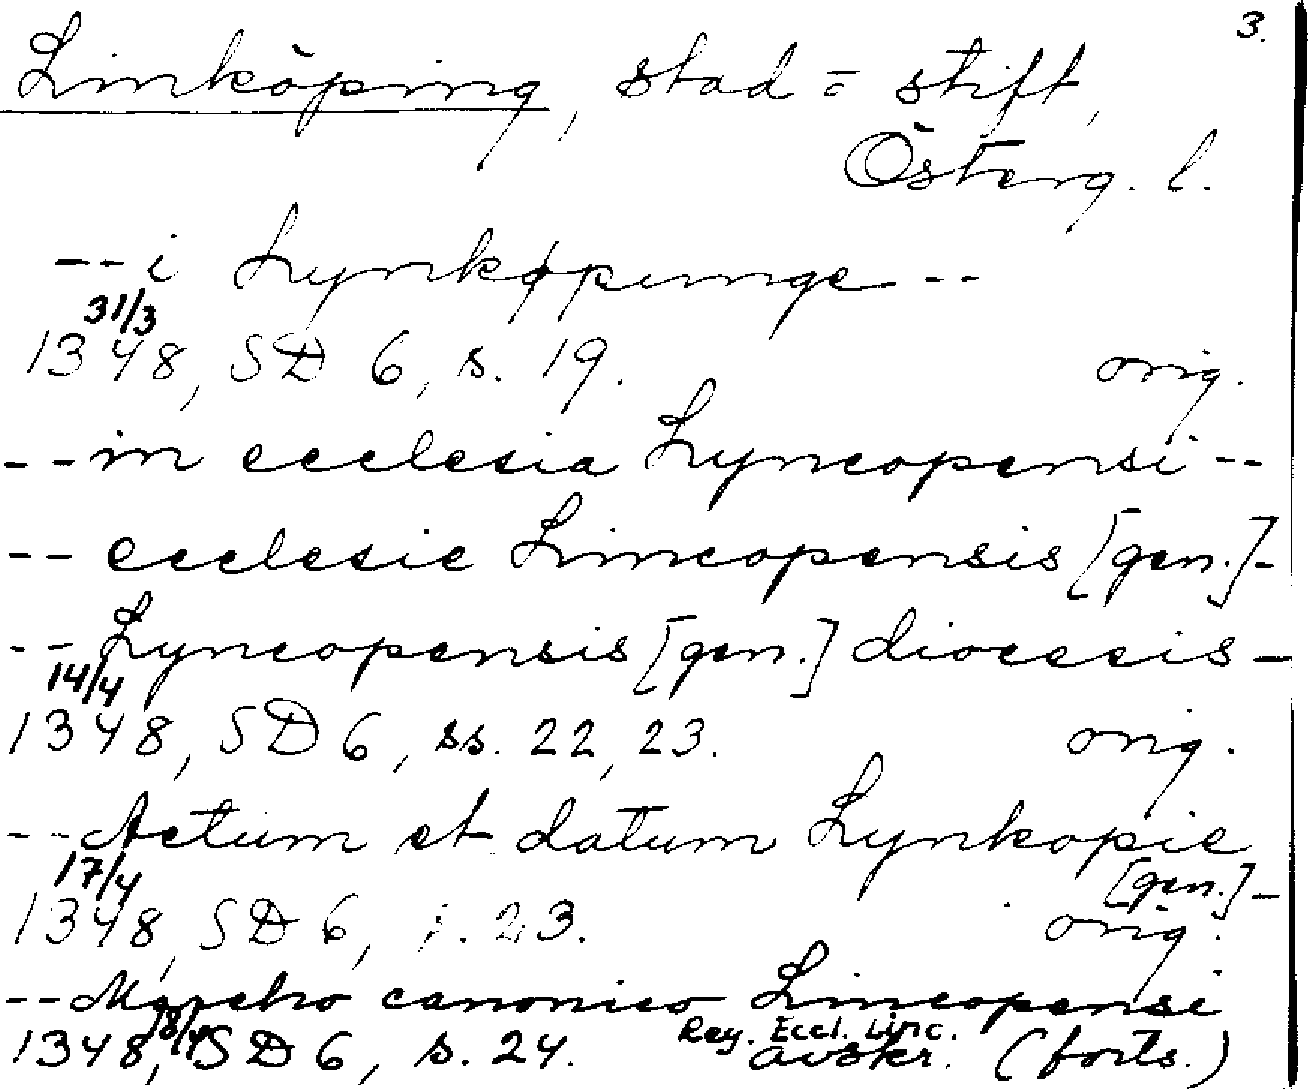 3.
Linköping, stad = stift,
Österg. l.
-- i Lynkøpunge --
31/3
1348, SD 6, s. 19. orig.
-- in ecclesia Lyncopensi --
-- ecclesie Lincopensis [gen.] -
-- Lyncopensis [gen.] diocesis -
14/4
1348, SD 6, ss. 22, 23. orig.
-- Actum et datum Lynkopie
[gen.] -
17/4
1348, SD 6, s. 23. orig.
-- canonico Lincopensi
18/4 Reg. Eccl. Linc.
1348, SD 6, s. 24. avskr. (forts.)